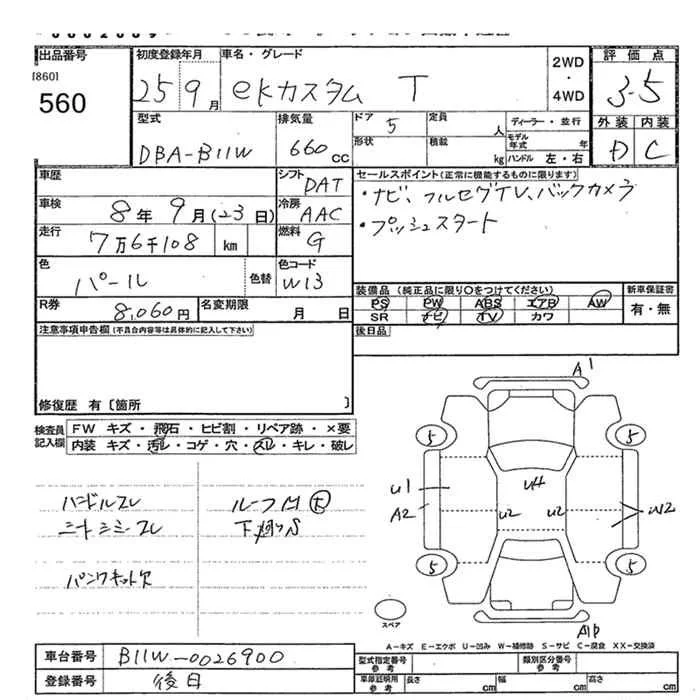 出品番号
[860]
560
初度登録年月
25年 9月
車名・グレード
eKカスタム T
2WD
・
4WD
評価点
3.5
外装 内装
D C
型式
DBA-B11W
排気量
660 cc
ドア
5
形状
定員
人
積載
kg
ディーラー・並行
モデル年式 年
ハンドル 左・右
車歴
シフト
DAT
セールスポイント(正常に機能するものに限ります)
・ナビ、フルセグTV、バックカメラ
・プッシュスタート
車検
8年 9月(23日)
冷房
AAC
走行
7万6千108 km
燃料
G
色
パール
色替
色コード
W13
R券
8,060円
名変期限
月 日
装備品(純正品に限り○をつけてください)
PS PW ABS エアB AW
SR ナビ TV カワ
新車保証書
有・無
後日品
注意事項申告欄(不具合内容等は具体的に記入して下さい)
修復歴 有〔箇所 〕
検査員記入欄
FW キズ・飛石・ヒビ割・リペア跡・×要
内装 キズ・汚レ・コゲ・穴・スレ・キレ・破レ
ハンドルスレ
シートシミ・スレ
パンクキット欠
下廻りS
A1
5
5
U1
A2
U4
U2
U2
W2
5
5
スペア
A-キズ E-エクボ U-凹み W-補修跡 S-サビ C-腐食 XX-交換済
車台番号
B11W-0026900
登録番号
後日
型式指定番号
参考
類別区分番号
参考
車庫証明用
参考
長さ cm
幅 cm
高さ cm